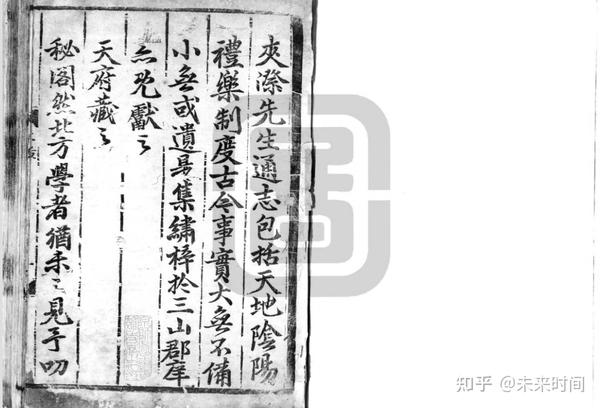 夾漈先生通志包括天地陰陽
禮樂制度古今事實大無不備
小無或遺是集繡梓於三山郡庠
亦既獻之
天府藏之
秘閣然北方學者猶未之見予叨
知乎 @未来时间